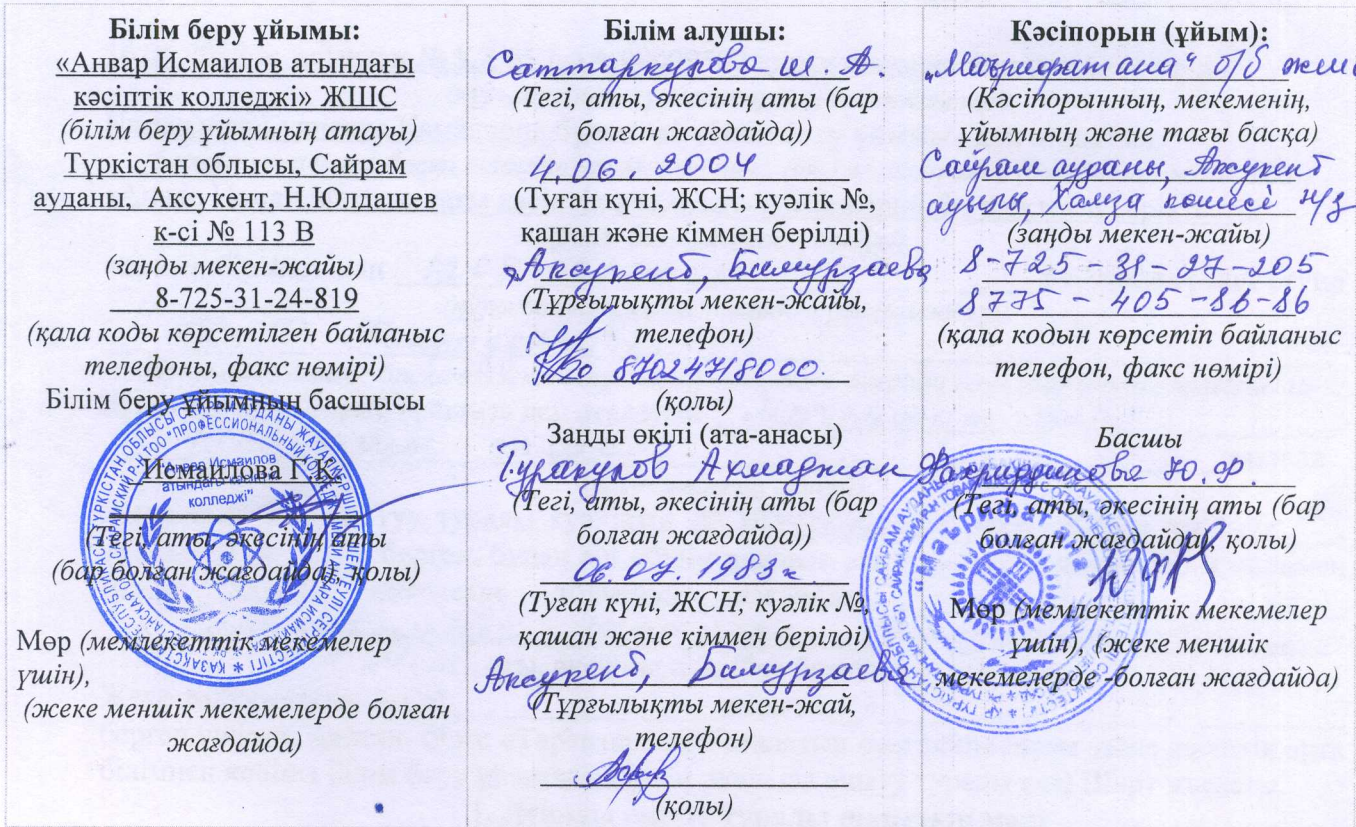 Білім беру ұйымы:
«Анвар Исмаилов атындағы
кәсіптік колледжі» ЖШС
(білім беру ұйымның атауы)
Түркістан облысы, Сайрам
ауданы, Аксукент, Н.Юлдашев
к-сі № 113 В
(заңды мекен-жайы)
8-725-31-24-819
(қала коды көрсетілген байланыс
телефоны, факс нөмірі)
Білім беру ұйымның басшысы
Исмаилова Г.К.
(Тегі, аты, әкесінің аты
(бар болған жағдайда), қолы)
Мөр (мемлекеттік мекемелер
үшін),
(жеке меншік мекемелерде болған
жағдайда)
"Анвар Исмаилов
атындағы кәсіптік
колледжі"
Білім алушы:
Саттаркулова Ш. А.
(Тегі, аты, әкесінің аты (бар
болған жағдайда))
4.06.2004
(Туған күні, ЖСН; куәлік №,
қашан және кіммен берілді)
Аксукент, Бамурзаева
(Тұрғылықты мекен-жайы,
телефон)
87024718000.
(қолы)
Заңды өкілі (ата-анасы)
Туракулов Ахмаджан
(Тегі, аты, әкесінің аты (бар
болған жағдайда))
06.07.1983 г
(Туған күні, ЖСН; куәлік №,
қашан және кіммен берілді)
Аксукент, Бамурзаева
(Тұрғылықты мекен-жай,
телефон)
(қолы)
Кәсіпорын (ұйым):
„Маърифат ана" б/б жшс
(Кәсіпорынның, мекеменің,
ұйымның және тағы басқа)
Сайрам ауданы, Аксукент
ауылы, Хамза көшесі н/з
(заңды мекен-жайы)
8-725-31 27-205
8775-405-86-86
(қала кодын көрсетіп байланыс
телефон, факс нөмірі)
Басшы
Фахридинова Ю.Ф.
(Тегі, аты, әкесінің аты (бар
болған жағдайда), қолы)
Мөр (мемлекеттік мекемелер
үшін), (жеке меншік
мекемелерде -болған жағдайда)